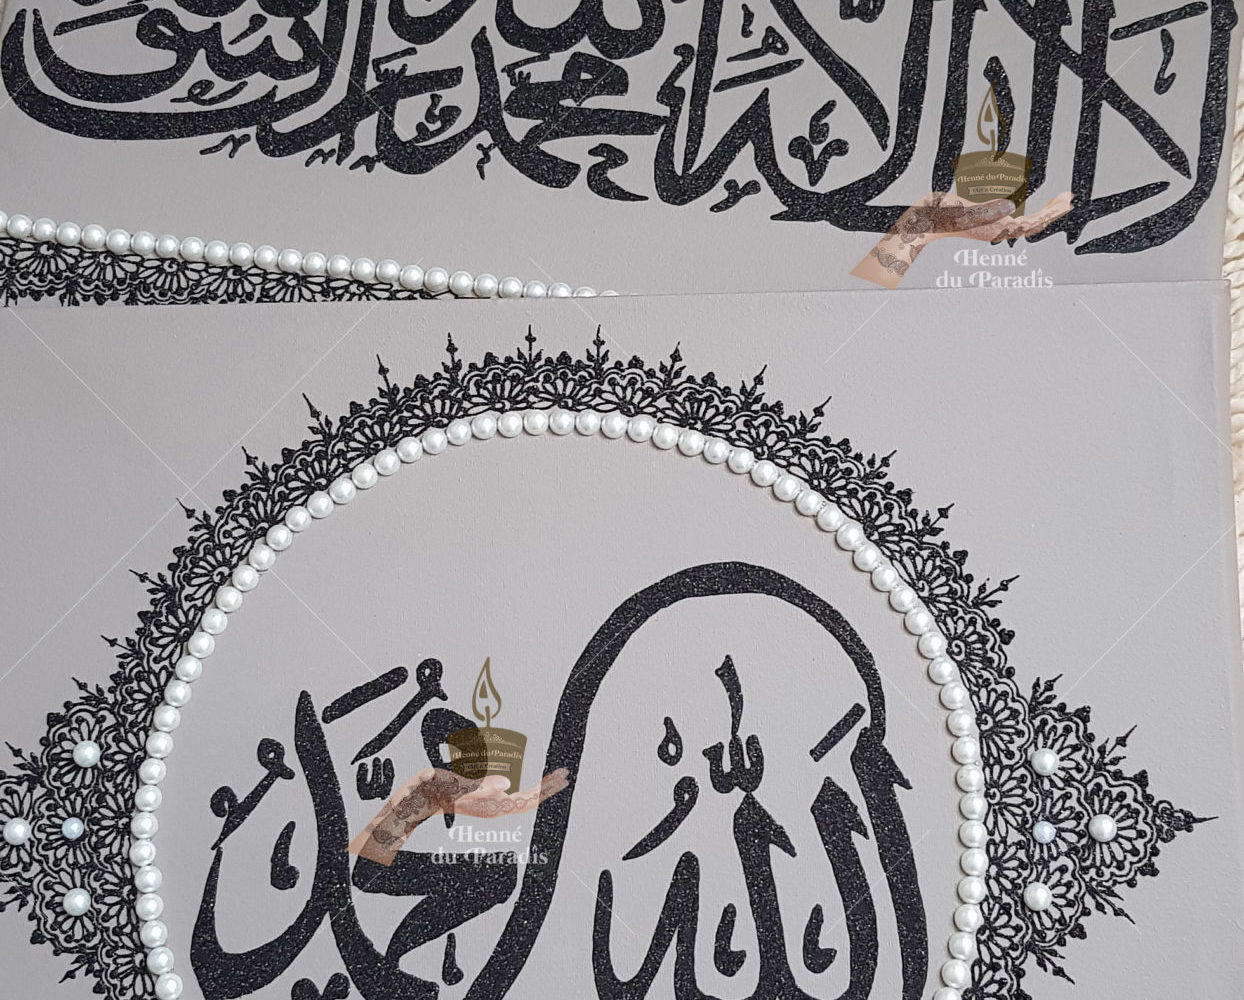 لا إله إلا الله محمد رسول الله
Henné du Paradis
Art & Création
Henné
du Paradis
محمد الله
Henné du Paradis
Art & Création
Henné
du Paradis